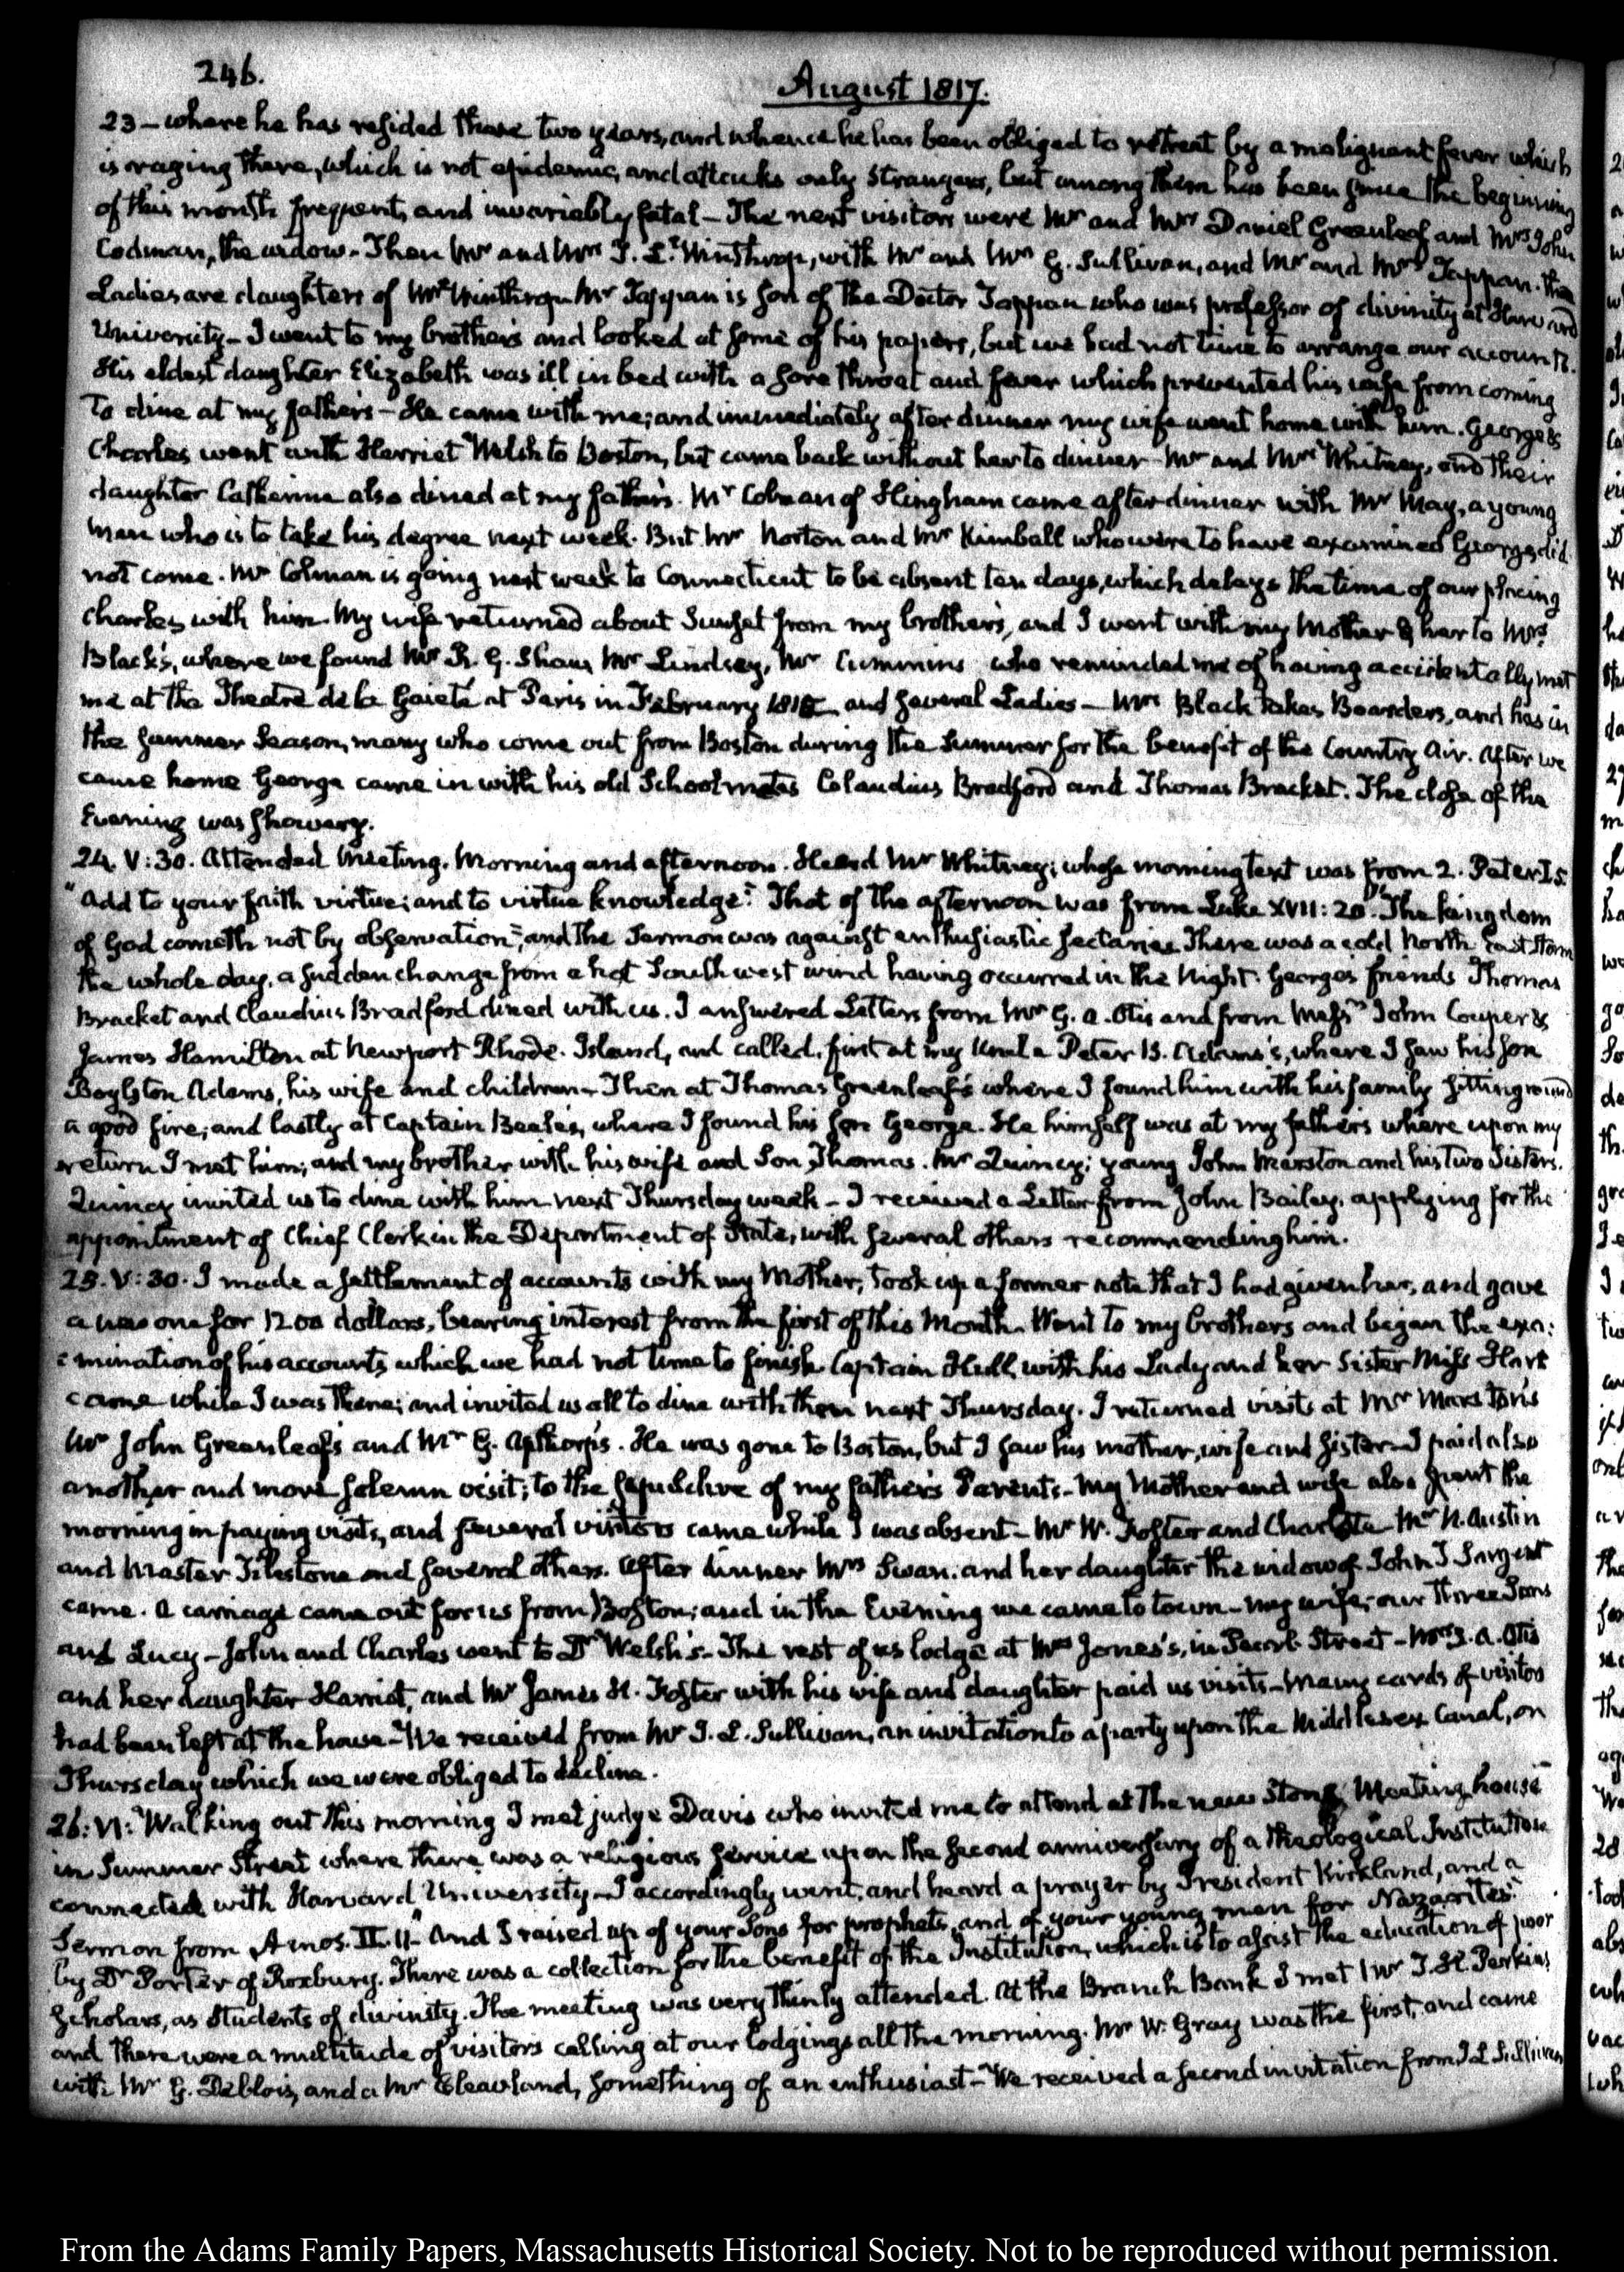 246.
August 1817.
23 - where he has resided these two years, and whence he has been obliged to retreat by a malignant fever which
is raging there, which is not epidemic, and attacks only strangers, but among them has been since the beginning
of this month frequent, and invariably fatal - The next visitors were Mr and Mrs Daniel Greenleaf and Mrs John
Codman, the widow. Then Mr and Mrs T. L. Winthrop, with Mr and Mrs G. Sullivan, and Mr and Mrs Tappan. the
Ladies are daughters of Mr Winthrop Mr Tappan is son of the Doctor Tappan who was professor of divinity at Harvard
University - I went to my brother's and looked at some of his papers, but we had not time to arrange our accounts.
His eldest daughter Elizabeth was ill in bed with a sore throat and fever which prevented his wife from coming
to dine at my father's - He came with me; and immediately after dinner my wife went home with him. George &
Charles went with Harriet Welsh to Boston, but came back without her to dinner - Mr and Mrs Whitney, and their
daughter Catherine also dined at my father's. Mr Colman of Hingham came after dinner with Mr May, a young
man who is to take his degree next week. But Mr Norton and Mr Kimball who were to have examined George, did
not come. Mr Colman is going next week to Connecticut to be absent ten days, which delays the time of our placing
Charles with him. My wife returned about Sunset from my brother's, and I went with my Mother & her to Mrs
Black's, where we found Mr R. G. Shaw, Mr Lindsey, Mr Cummins who reminded me of having accidentally met
me at the Theatre de la Gaieté at Paris in February 1815 and several Ladies - Mrs Black takes Boarders, and has in
the summer season, many who come out from Boston during the Summer for the benefit of the Country air. After we
came home George came in with his old Schoolmates Colaudius Bradford and Thomas Bracket. The close of the
Evening was showery.
24. V:30. Attended Meeting. Morning and afternoon. Heard Mr Whitney; whose morning text was from 2. Peter I.5
"Add to your faith virtue; and to virtue knowledge." That of the afternoon was from Luke XVII:20. "The kingdom
of God cometh not by observation", and the Sermon was against enthusiastic sectaries There was a cold North East Storm
the whole day, a sudden change from a hot South west wind having occurred in the Night. George's friends Thomas
Bracket and Claudius Bradford dined with us. I answered Letters from Mr G. A. Otis and from Messrs John Couper &
James Hamilton at Newport Rhode-Island, and called, first at my Uncle Peter B. Adams's, where I saw his son
Boylston Adams, his wife and children - Then at Thomas Greenleaf's where I found him with his family sitting round
a good fire; and lastly at Captain Beale's, where I found his son George. He himself was at my father's where upon my
return I met him; and my brother with his wife and Son, Thomas. Mr Quincy; young John Marston and his two Sisters.
Quincy invited us to dine with him next Thursday week - I received a Letter from John Bailey, applying for the
appointment of Chief Clerk in the Department of State, with several others recommending him.
25. V:30. I made a settlement of accounts with my Mother, took up a former note that I had given her, and gave
a new one for 1200 dollars, bearing interest from the first of this Month. Went to my brother's and began the exa:
:mination of his accounts which we had not time to finish. Captain Hull, with his Lady and her Sister Miss Hart
came while I was there; and invited us all to dine with them next Thursday. I returned visits at Mr Marston's
Mr John Greenleaf's and Mr G. Apthorp's. He was gone to Boston, but I saw his mother, wife and sister - I paid also
another and more solemn visit; to the sepulchre of my father's Parents - My Mother and wife also spent the
morning in paying visits, and several visitors came while I was absent - Mr W. Foster and Charlotte Mr N. Austin
and Master Tilestone and several others. After dinner Mrs Swan, and her daughter the widow of John T Sargent
came. A carriage came out for us from Boston; and in the Evening we came to town - my wife; our three Sons
and Lucy - John and Charles went to Dr Welsh's - The rest of us lodge at Mrs Jones's, in Pearl Street - Mrs S. A. Otis
and her daughter Harriet, and Mr James H. Foster with his wife and daughter paid us visits - Many cards of visitors
had been left at the house - We received from Mr J. L. Sullivan, an invitation to a party upon the Middlesex Canal, on
Thursday which we were obliged to decline.
26: VI: Walking out this morning I met judge Davis who invited me to attend at the new Stone Meeting house
in Summer Street where there was a religious service upon the second anniversary of a theological Institution
connected with Harvard University - I accordingly went, and heard a prayer by President Kirkland, and a
Sermon from Amos. II. 11 "And I raised up of your Sons for prophets, and of your young men for Nazarites."
by Dr Porter of Roxbury. There was a collection for the benefit of the Institution, which is to assist the education of poor
scholars, as students of divinity. The meeting was very thinly attended. At the Branch Bank I met Mr T. H. Perkins
and there were a multitude of visitors calling at our lodgings all the morning. Mr W. Gray was the first, and came
with Mr G. Deblois, and a Mr Cleaveland, something of an enthusiast - We received a second invitation from J L Sullivan
From the Adams Family Papers, Massachusetts Historical Society. Not to be reproduced without permission.